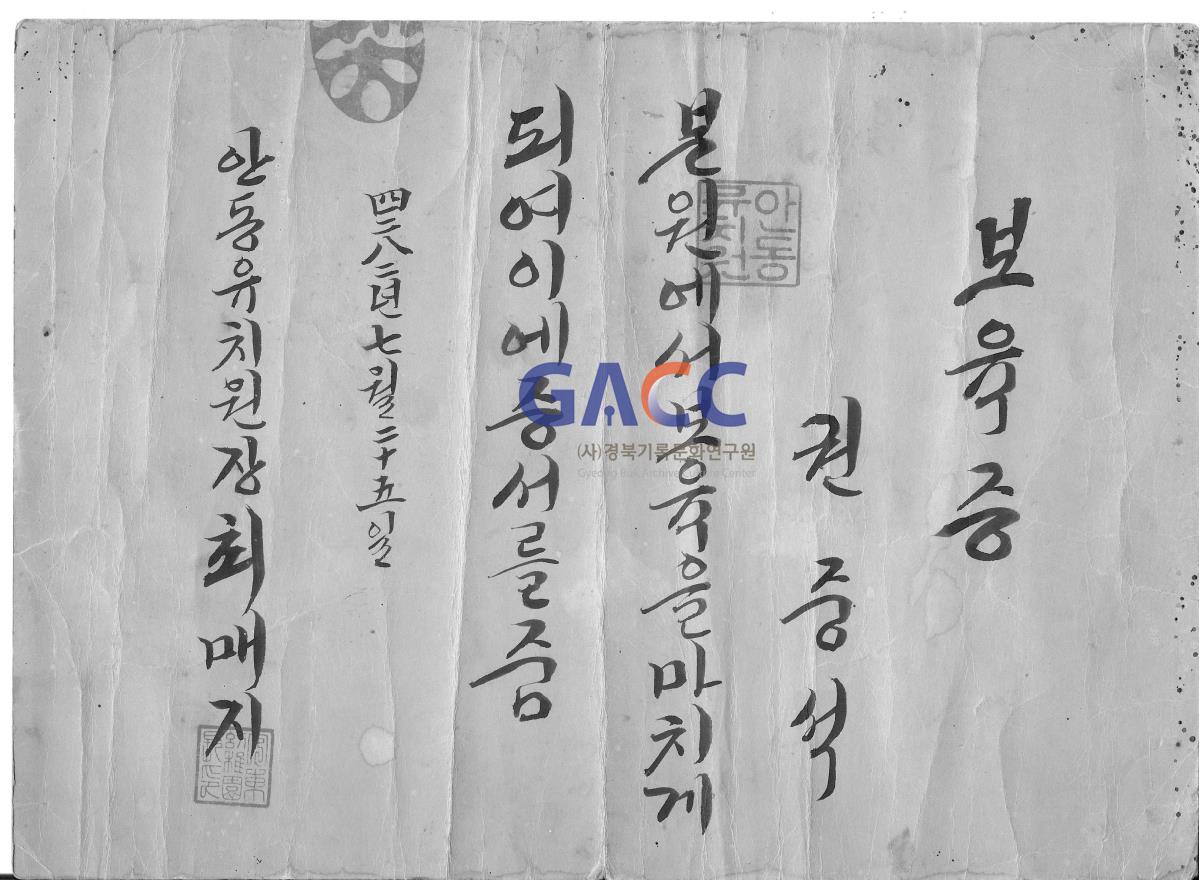 보육증
권중석
안동
류치원
본원에서보육을마치게
되여이에증서를줌
四二八二년七월二十五일
안동유치원장최매지
GACC
(사)경북기록문화연구원